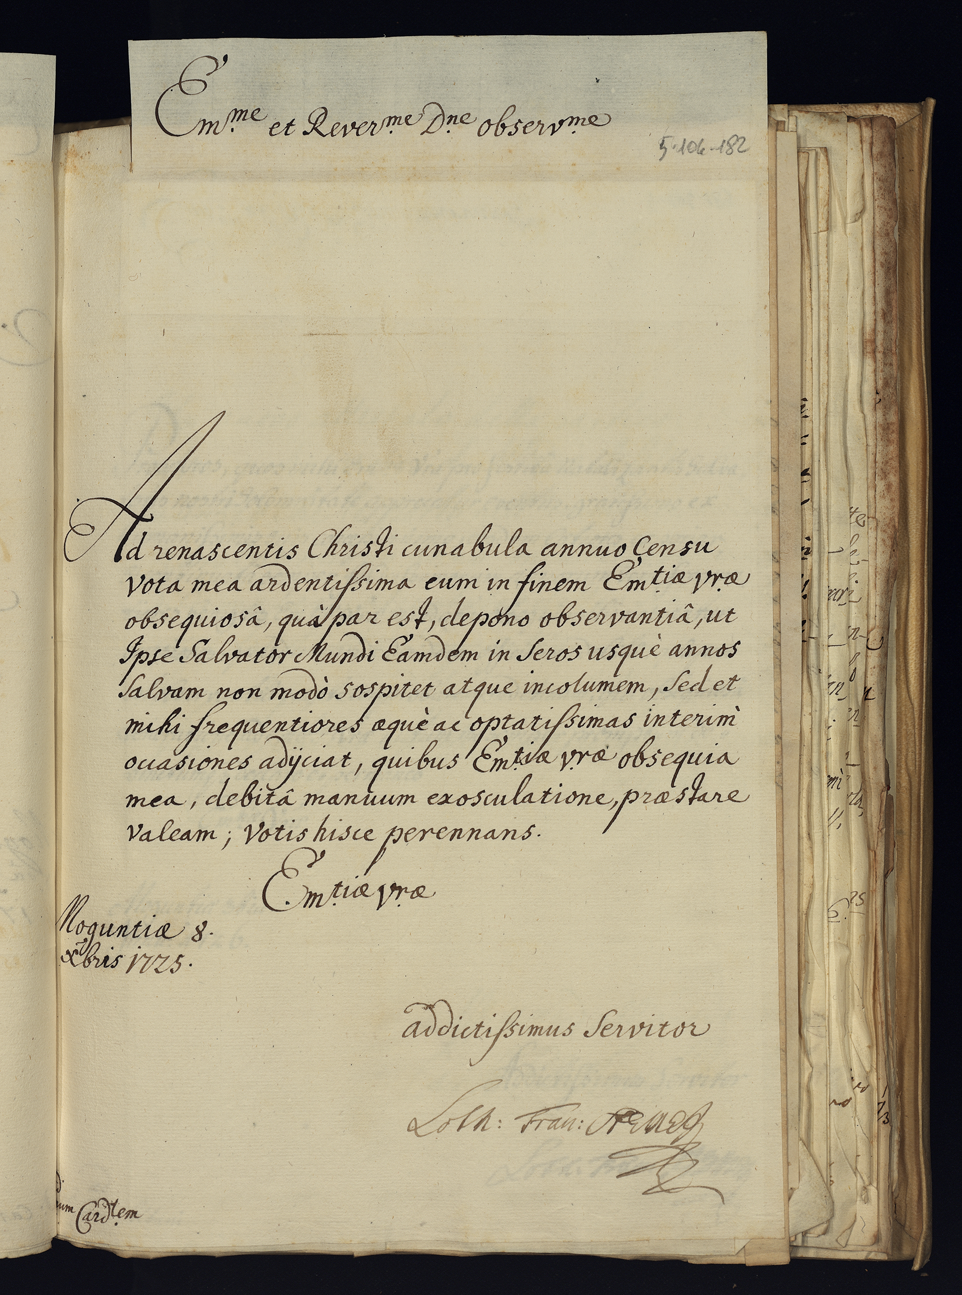 Em.me et Rever.me Dne observme
5·106·182
Ad renascentis Christi cunabula annuo Censu
vota mea ardentissima eum in finem Em.tiæ vræ
obsequiosâ, quà par est, depono observantiâ, ut
Ipse Salvator Mundi Eamdem in Seros usquè annos
Salvam non modò sospitet atque incolumem, Sed et
mihi frequentiores æquè ac optatissimas interim̀
occasiones adijciat, quibus Em.tiæ v.ræ obsequia
mea, debitâ manuum exosculatione, præstare
valeam; Votis hisce perennans.
Em.tiæ v.ræ
Moguntiæ 8.
Xbris 1725.
addictissimus Servitor
Loth: Fran:
Card.lem